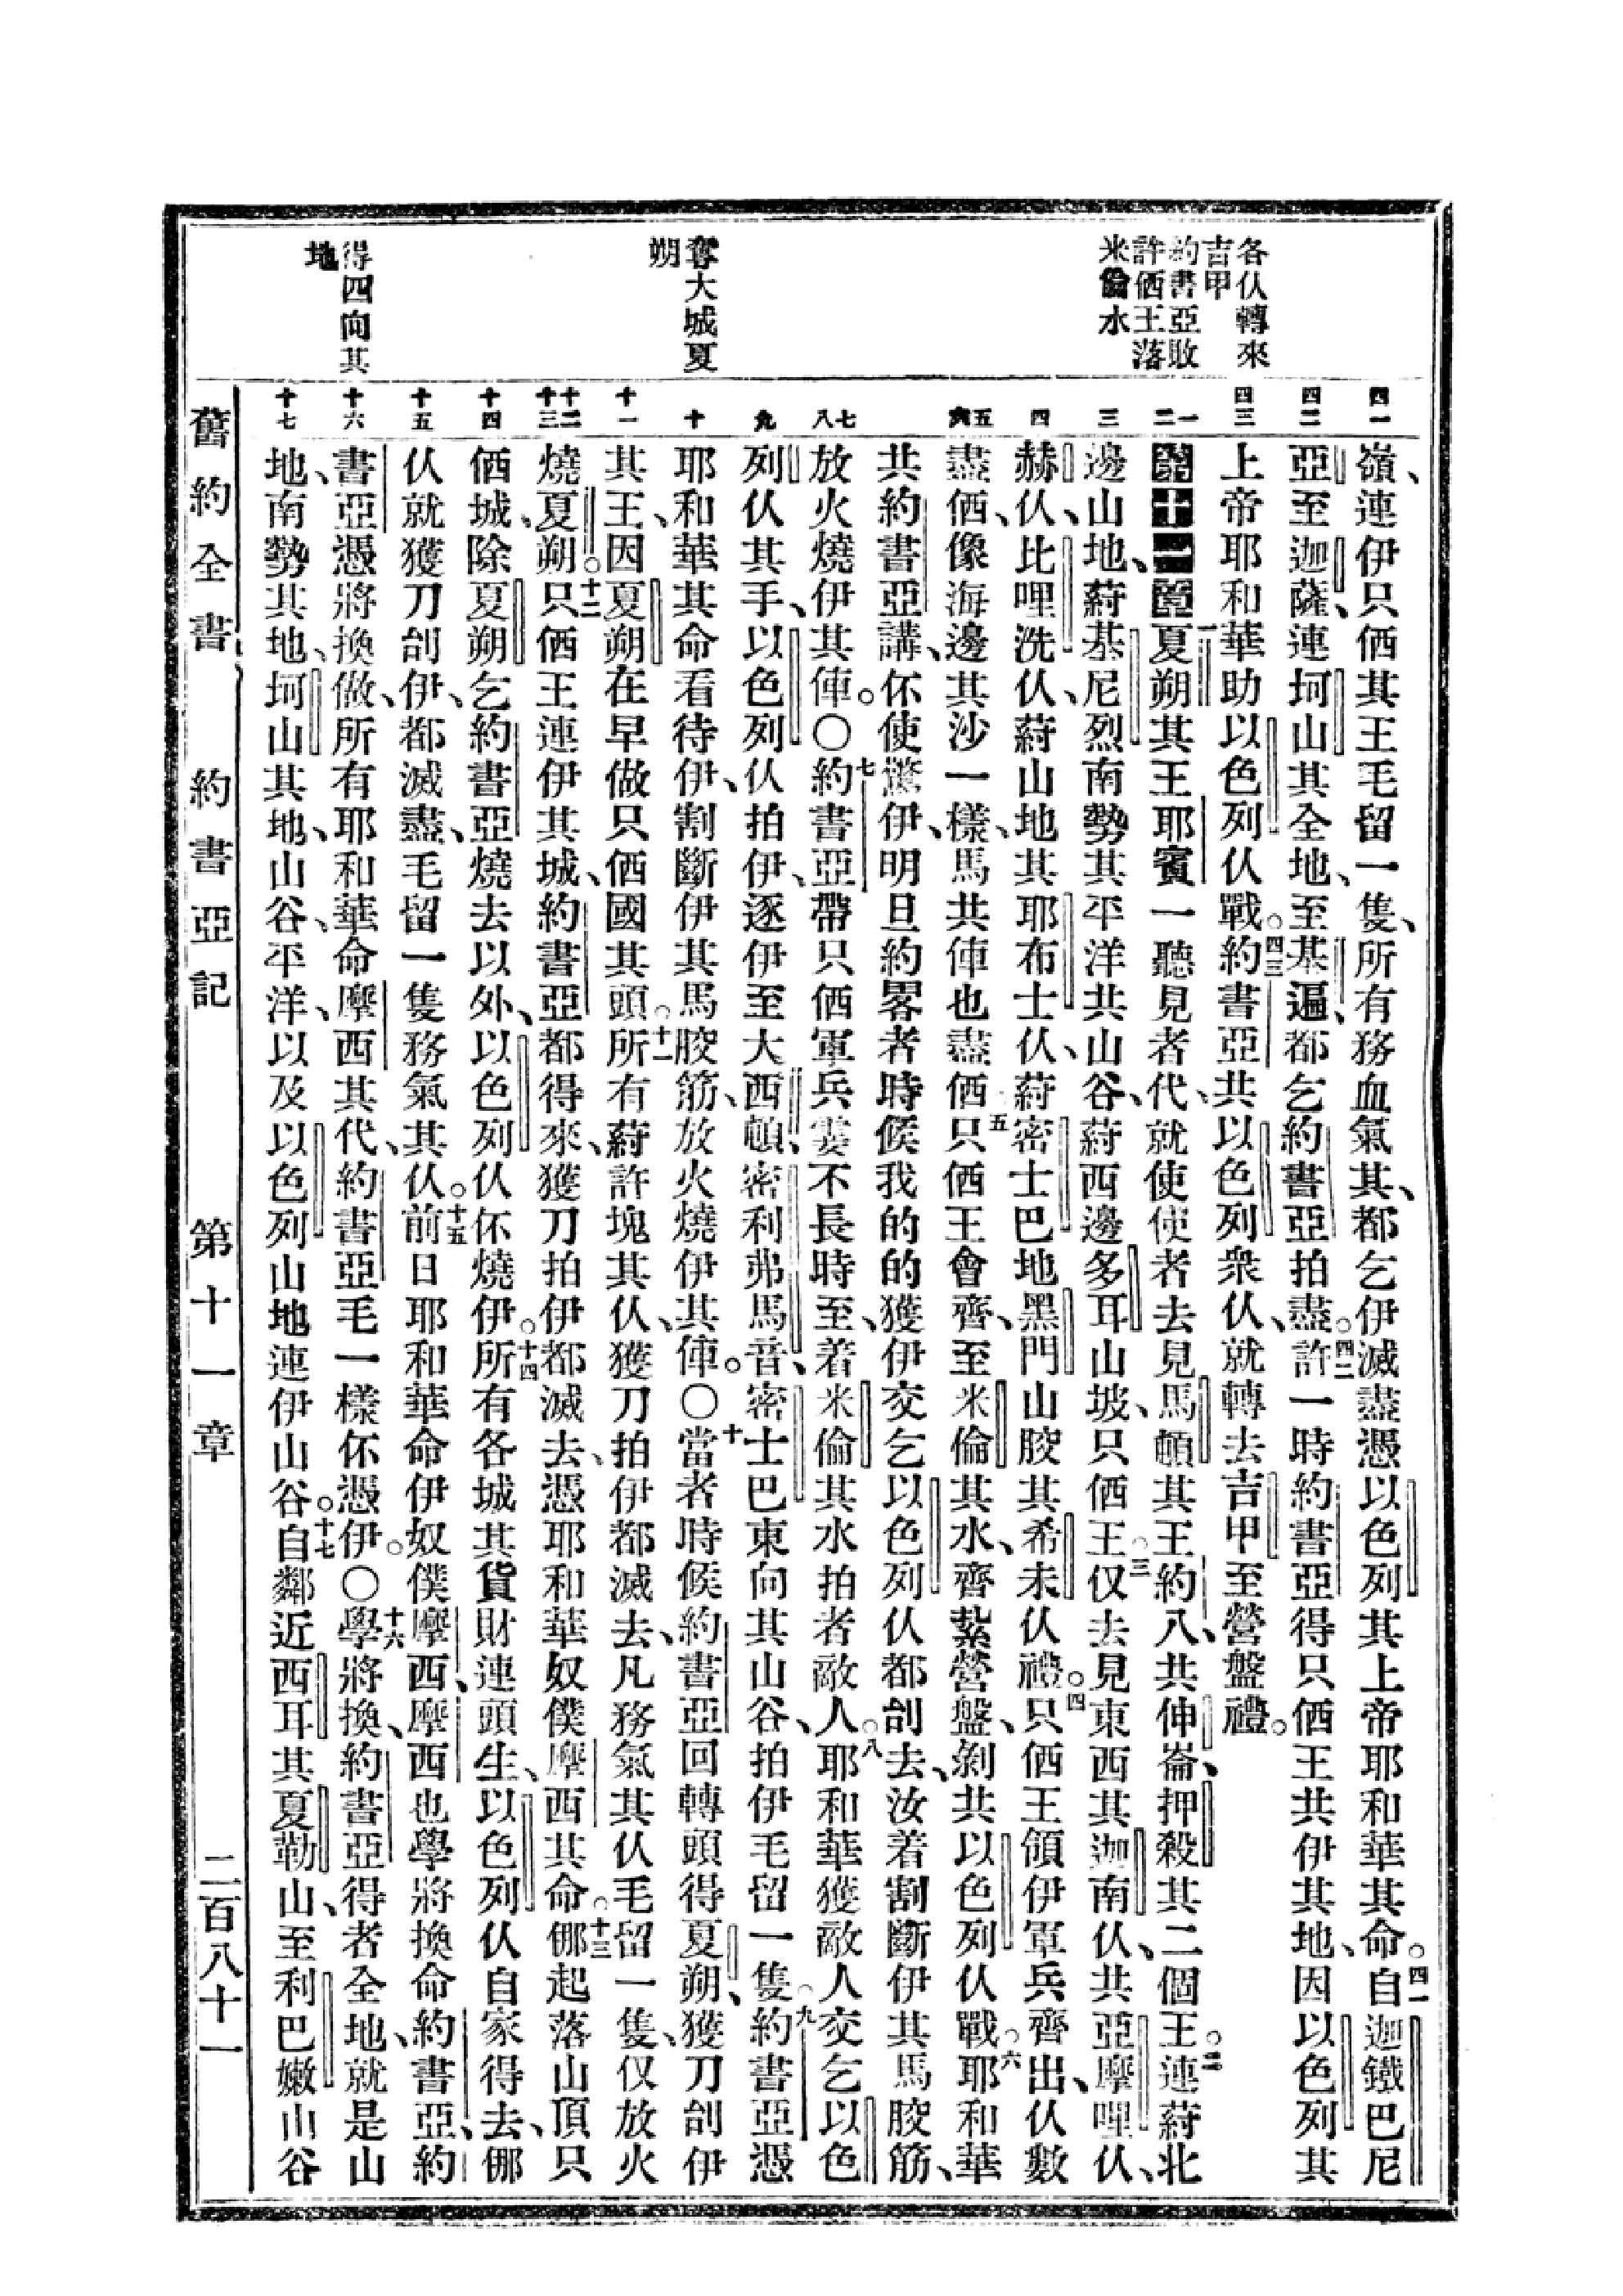 各仫轉來
吉甲
約書亞敗
許伵王落
米倫水
奪大城夏
朔
得四向其
地
四一
四二
四三
一二
三
四
五六
七八
九
十
十一
十二十三
十四
十五
十六
十七
嶺、連伊只伵其王毛留一隻、所有務血氣其、都乞伊滅盡憑以色列其上帝耶和華其命。四一自迦鐵巴尼
亞至迦薩、連坷山其全地、至基遍、都乞約書亞拍盡。四二許一時約書亞得只伵王共伊其地、因以色列其
上帝耶和華助以色列仫戰。四三約書亞共以色列衆仫、就轉去吉甲至營盤禮。
第十一章一夏朔其王耶賓一聽見者代、就使使者去見馬頓其王約八、共伸崙、押殺其二個王。二連蒔北
邊山地、蒔基尼烈南勢其平洋共山谷、蒔西邊多耳山坡、只伵王。三仅去見東西其迦南仫、共亞摩哩仫、
赫仫、比哩洗仫、蒔山地其耶布士仫、蒔密士巴地黑門山脧其希未仫禮。四只伵王領伊軍兵齊出、仫數
盡伵、像海邊其沙一樣、馬共俥也盡伵五只伵王會齊、至米倫其水、齊紮營盤、剿共以色列仫戰。六耶和華
共約書亞講、伓使驚伊、明旦約畧者時候我的的獲伊交乞以色列仫都刣去、汝着割斷伊其馬脧筋、
放火燒伊其俥。〇七約書亞帶只伵軍兵霎不長時至、着米倫其水拍者敵人。八耶和華獲敵人交乞以色
列仫其手、以色列仫拍伊、逐伊至大西頓、密利弗馬音、密士巴東向其山谷、拍伊毛留一隻。九約書亞憑
耶和華其命看待伊、割斷伊其馬脧筋、放火燒伊其俥。〇十當者時候約書亞回轉頭得夏朔、獲刀刣伊
其王、因夏朔在早做只伵國其頭。十一所有蒔許塊其仫、獲刀拍伊都滅去、凡務氣其仫毛留一隻、仅放火
燒夏朔。十二只伵王連伊其城、約書亞都得來、獲刀拍伊都滅去、憑耶和華奴僕摩西其命。十三㑚起落山頂只
伵城、除夏朔乞約書亞燒去以外、以色列仫伓燒伊。十四所有各城其貨財連頭生、以色列仫自家得去、㑚
仫就獲刀刣伊、都滅盡、毛留一隻務氣其仫。十五前日耶和華命伊奴僕摩西、摩西也學將換命約書亞、約
書亞憑將換做、所有耶和華命摩西其代、約書亞毛一樣伓憑伊。〇十六學將換、約書亞得者全地、就是山
地、南勢其地、坷山其地、山谷、平洋、以及以色列山地連伊山谷。十七自鄰近西耳其夏勒山、至利巴嫩山谷
舊約全書 約書亞記 第十一章 二百八十一